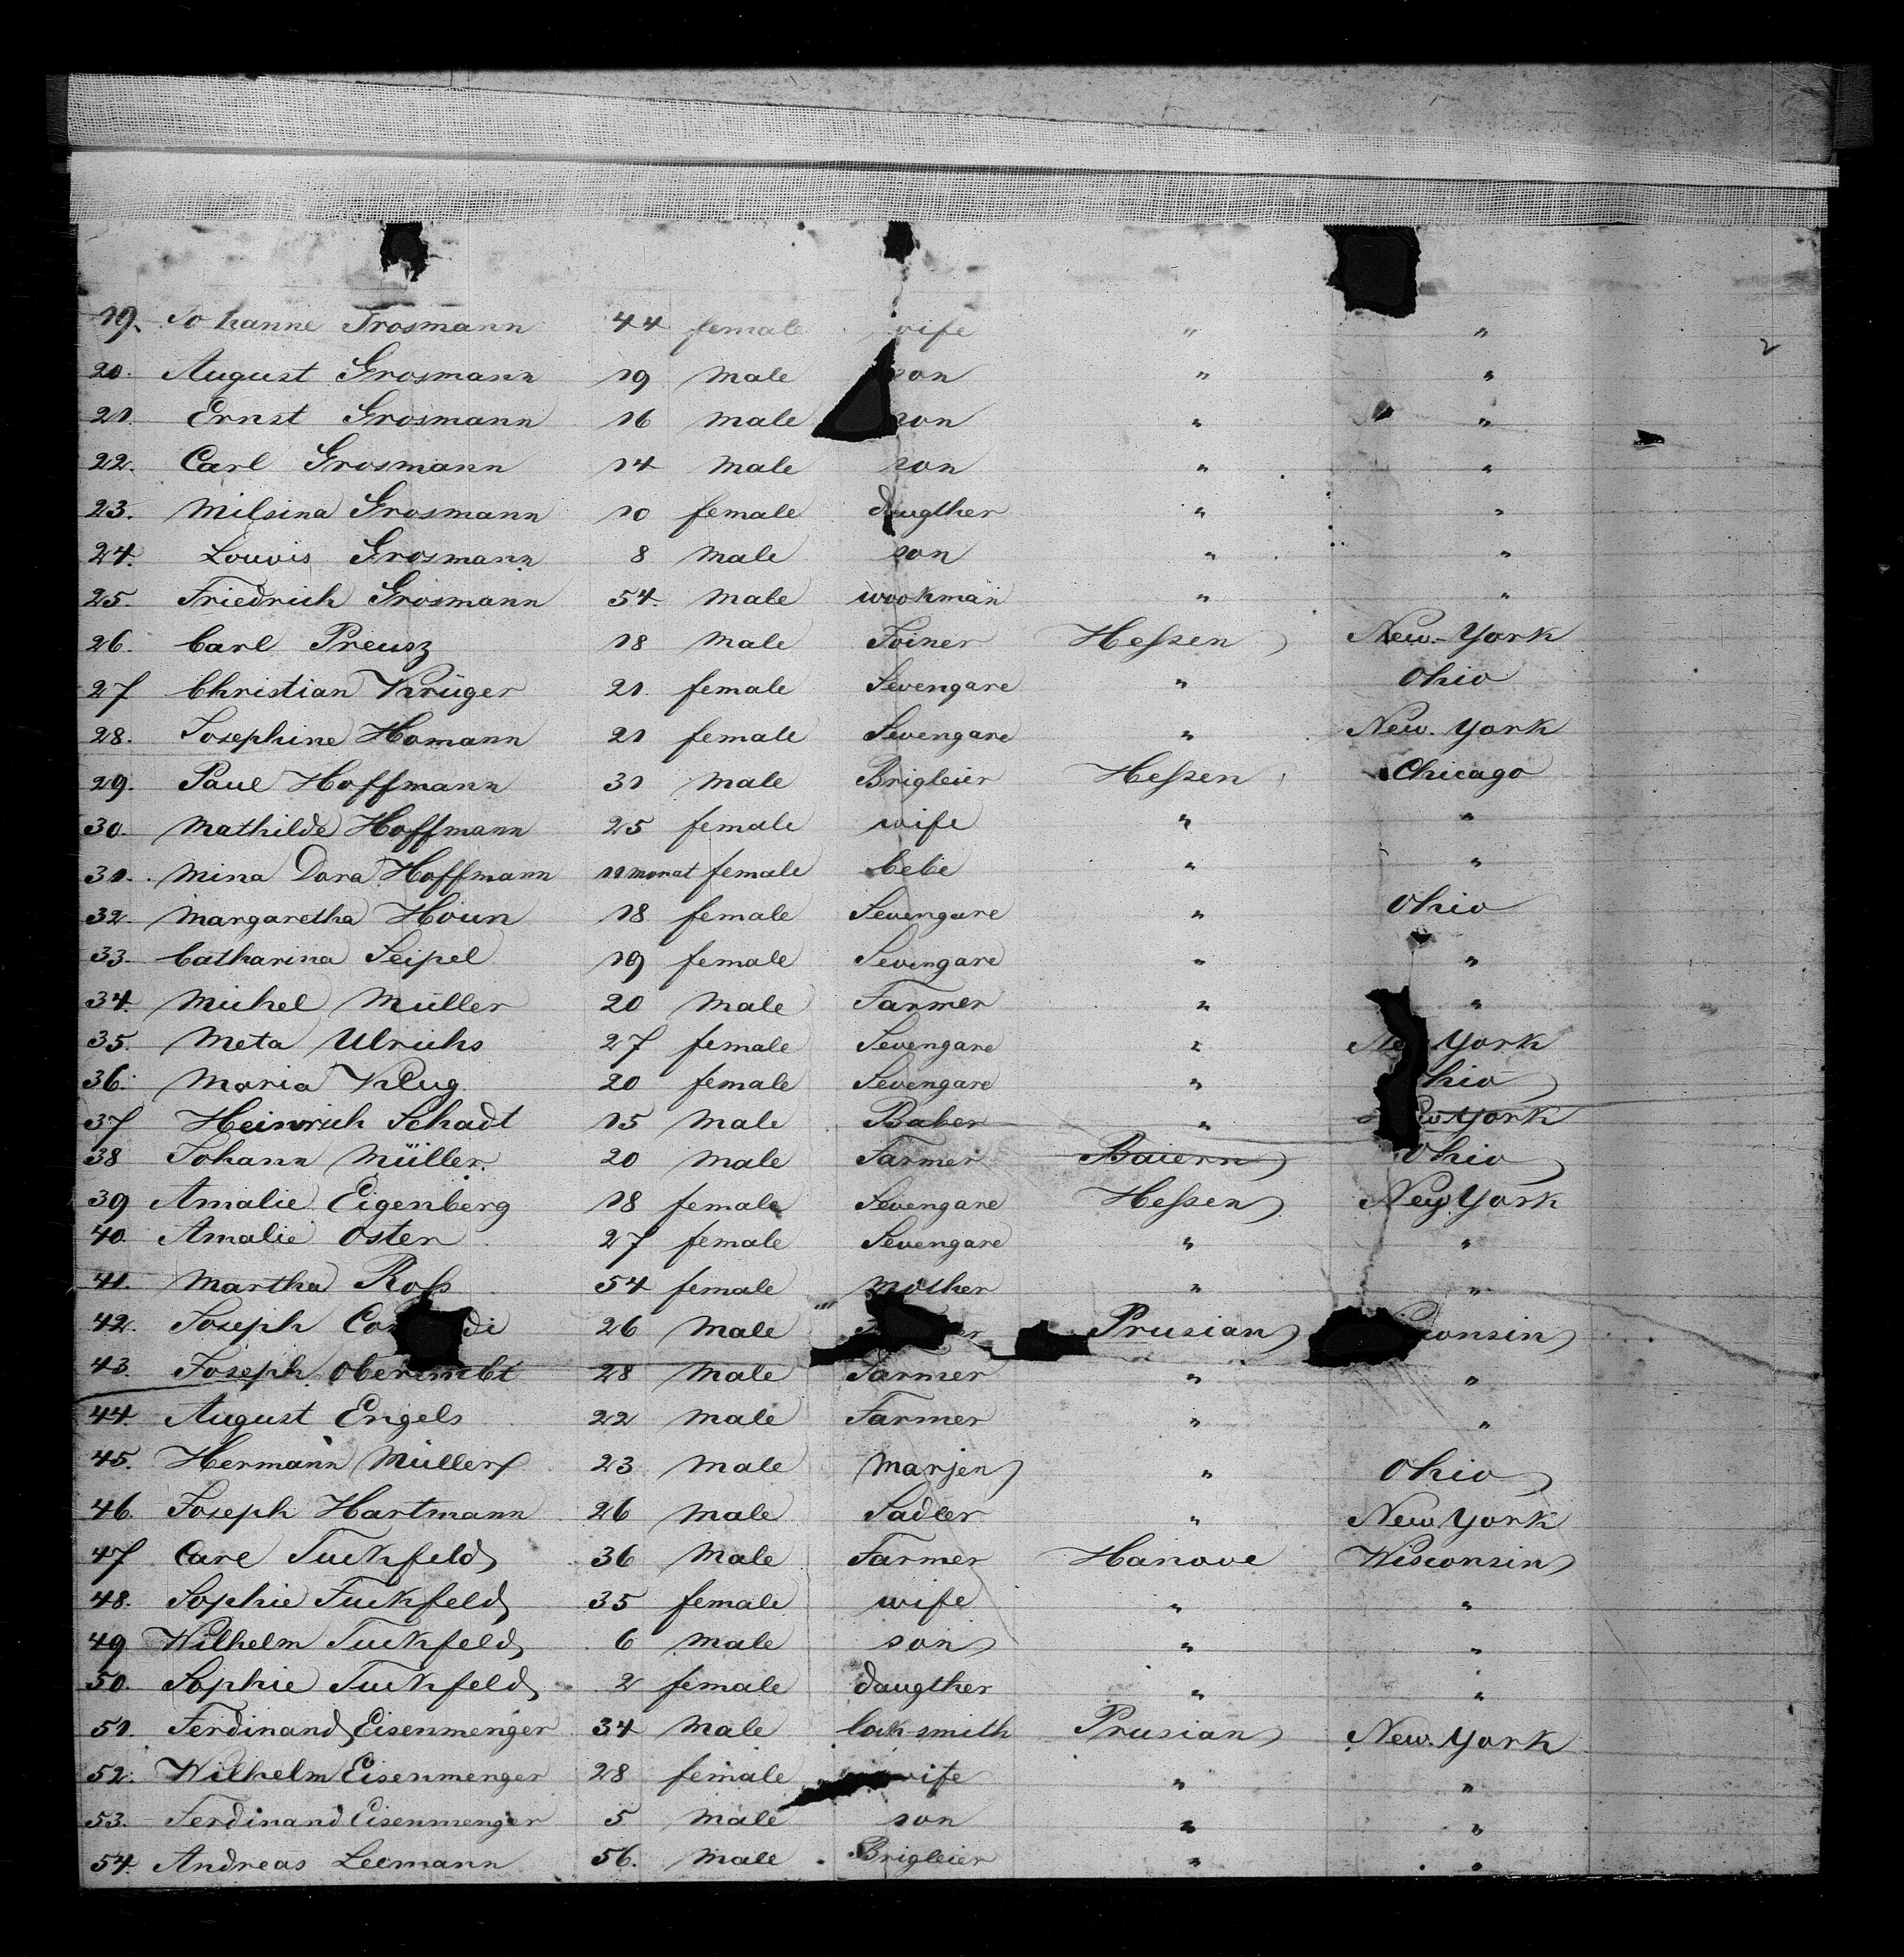 2
19. Johanne Grosmann 44 female wife " "
20. August Grosmann 19 Male son " "
21. Ernst Grosmann 16 Male son " "
22. Carl Grosmann 14 Male son " "
23. Milsina Grosmann 10 female daugther " "
24. Louvis Grosmann 8 Male son " "
25. Friedrich Grosmann 54. Male wookman " "
26. Carl Preusz 18 Male Joiner Heßen New-York
27 Christian Krüger 21. female Sevengare " Ohio
28. Josephine Homann 21 female Sevengare " New. York
29. Paul Hoffmann 31 Male Brigleier Heßen Chicago
30. Mathilde Hoffmann 25 female wife " "
31. Mina Dora Hoffmann 11 monat female bebe " "
32. Margaretha Houn 18 female Sevengare " Ohio
33. Catharina Seipel 19 female Sevengare " "
34. Michel Müller 20 Male Farmer " "
35. Meta Ulrichs 27 female Sevengare " New York
36. Maria Klug 20 female Sevengare " Ohio
37 Heinrich Schadt 15 Male Baber " New York
38 Johann Müller. 20 Male Farmer Baiern Ohio
39 Amalie Eigenberg 18 female Sevengare Heßen New York
40. Amalie Oster 27 female Sevengare " "
41. Martha Roß 54 female Mother " "
42. Joseph 26 Male Prusian Wisconsin
43. Joseph 28 Male Farmer " "
44. August Engels 22 Male Farmer " "
45. Hermann Müller 23 Male Marjen " Ohio
46. Joseph Hartmann 26 Male Sadler " New York
47 Carl Tuckfeld 36 Male Farmer Hanove Wisconsin
48. Sophie Tuckfeld 35 female wife " "
49 Wilhelm Tuckfeld 6 Male son " "
50. Sophie Tuckfeld 2 female daugther " "
51. Ferdinand Eisenmenger 34 Male lock-smith Prusian New. York
52. Wilhelm Eisenmenger 28 female wife " "
53. Ferdinand Eisenmenger 5 Male son " "
54. Andreas Leemann 56. Male Brigleier " "